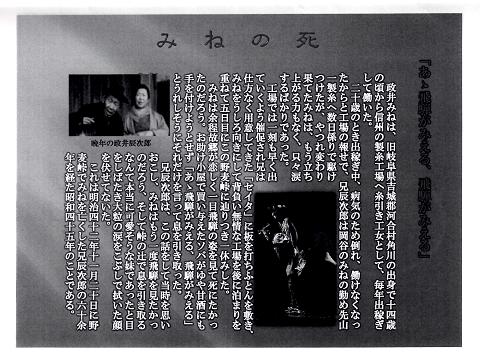 みねの死
「あゝ飛騨がみえる、飛騨がみえる」
政井みねは、旧岐阜県吉城郡河合村角川の出身で十四歳
の頃から信州の製糸工場へ糸引き工女として、毎年出稼ぎ
して働いた。
二十歳のとき出稼ぎ中、病気のため倒れ、働けなくなっ
たからと工場の報せで、兄辰次郎は岡谷のみねの勤め先山
一製糸へ数日係りで駆け
つけたが、やつれ変わり
果てたみねは、もう立ち
上がる力もなく、只々涙
するばかりであった。
工場では一刻も早く出
ていくよう催促され兄は
仕方なく用意してきた「セイタ」に板を打ちふとんを敷き、
みねをうしろ向きにして背負い無情な工場を後に泊まりを
重ねて五日目にこの野麦峠に辿りつき一休みした。
みねは余程故郷が恋しく一目飛騨の姿を見て死にたかっ
たのだろう。お助け小屋で買い与えたソバがゆや甘酒にも
手を付けようとせず「あゝ飛騨がみえる、飛騨がみえる」
とうれしそうにそれだけを言って息を引き取った。
兄辰次郎は、この話をして当時を思い
おこし、みねはもう一度飛騨を見たかっ
たのだろう、そして峠の上で息を引き取る
なんて本当に可愛そうな妹であったと目
をしばたき大粒の涙をこぶしで拭いた顔
を伏せてないた。
これは明治四十二年十一月二十日に野
麦峠でみねを亡くした兄辰次郎の六十余
年を経た昭和四十五年のことである。
晩年の政井辰次郎